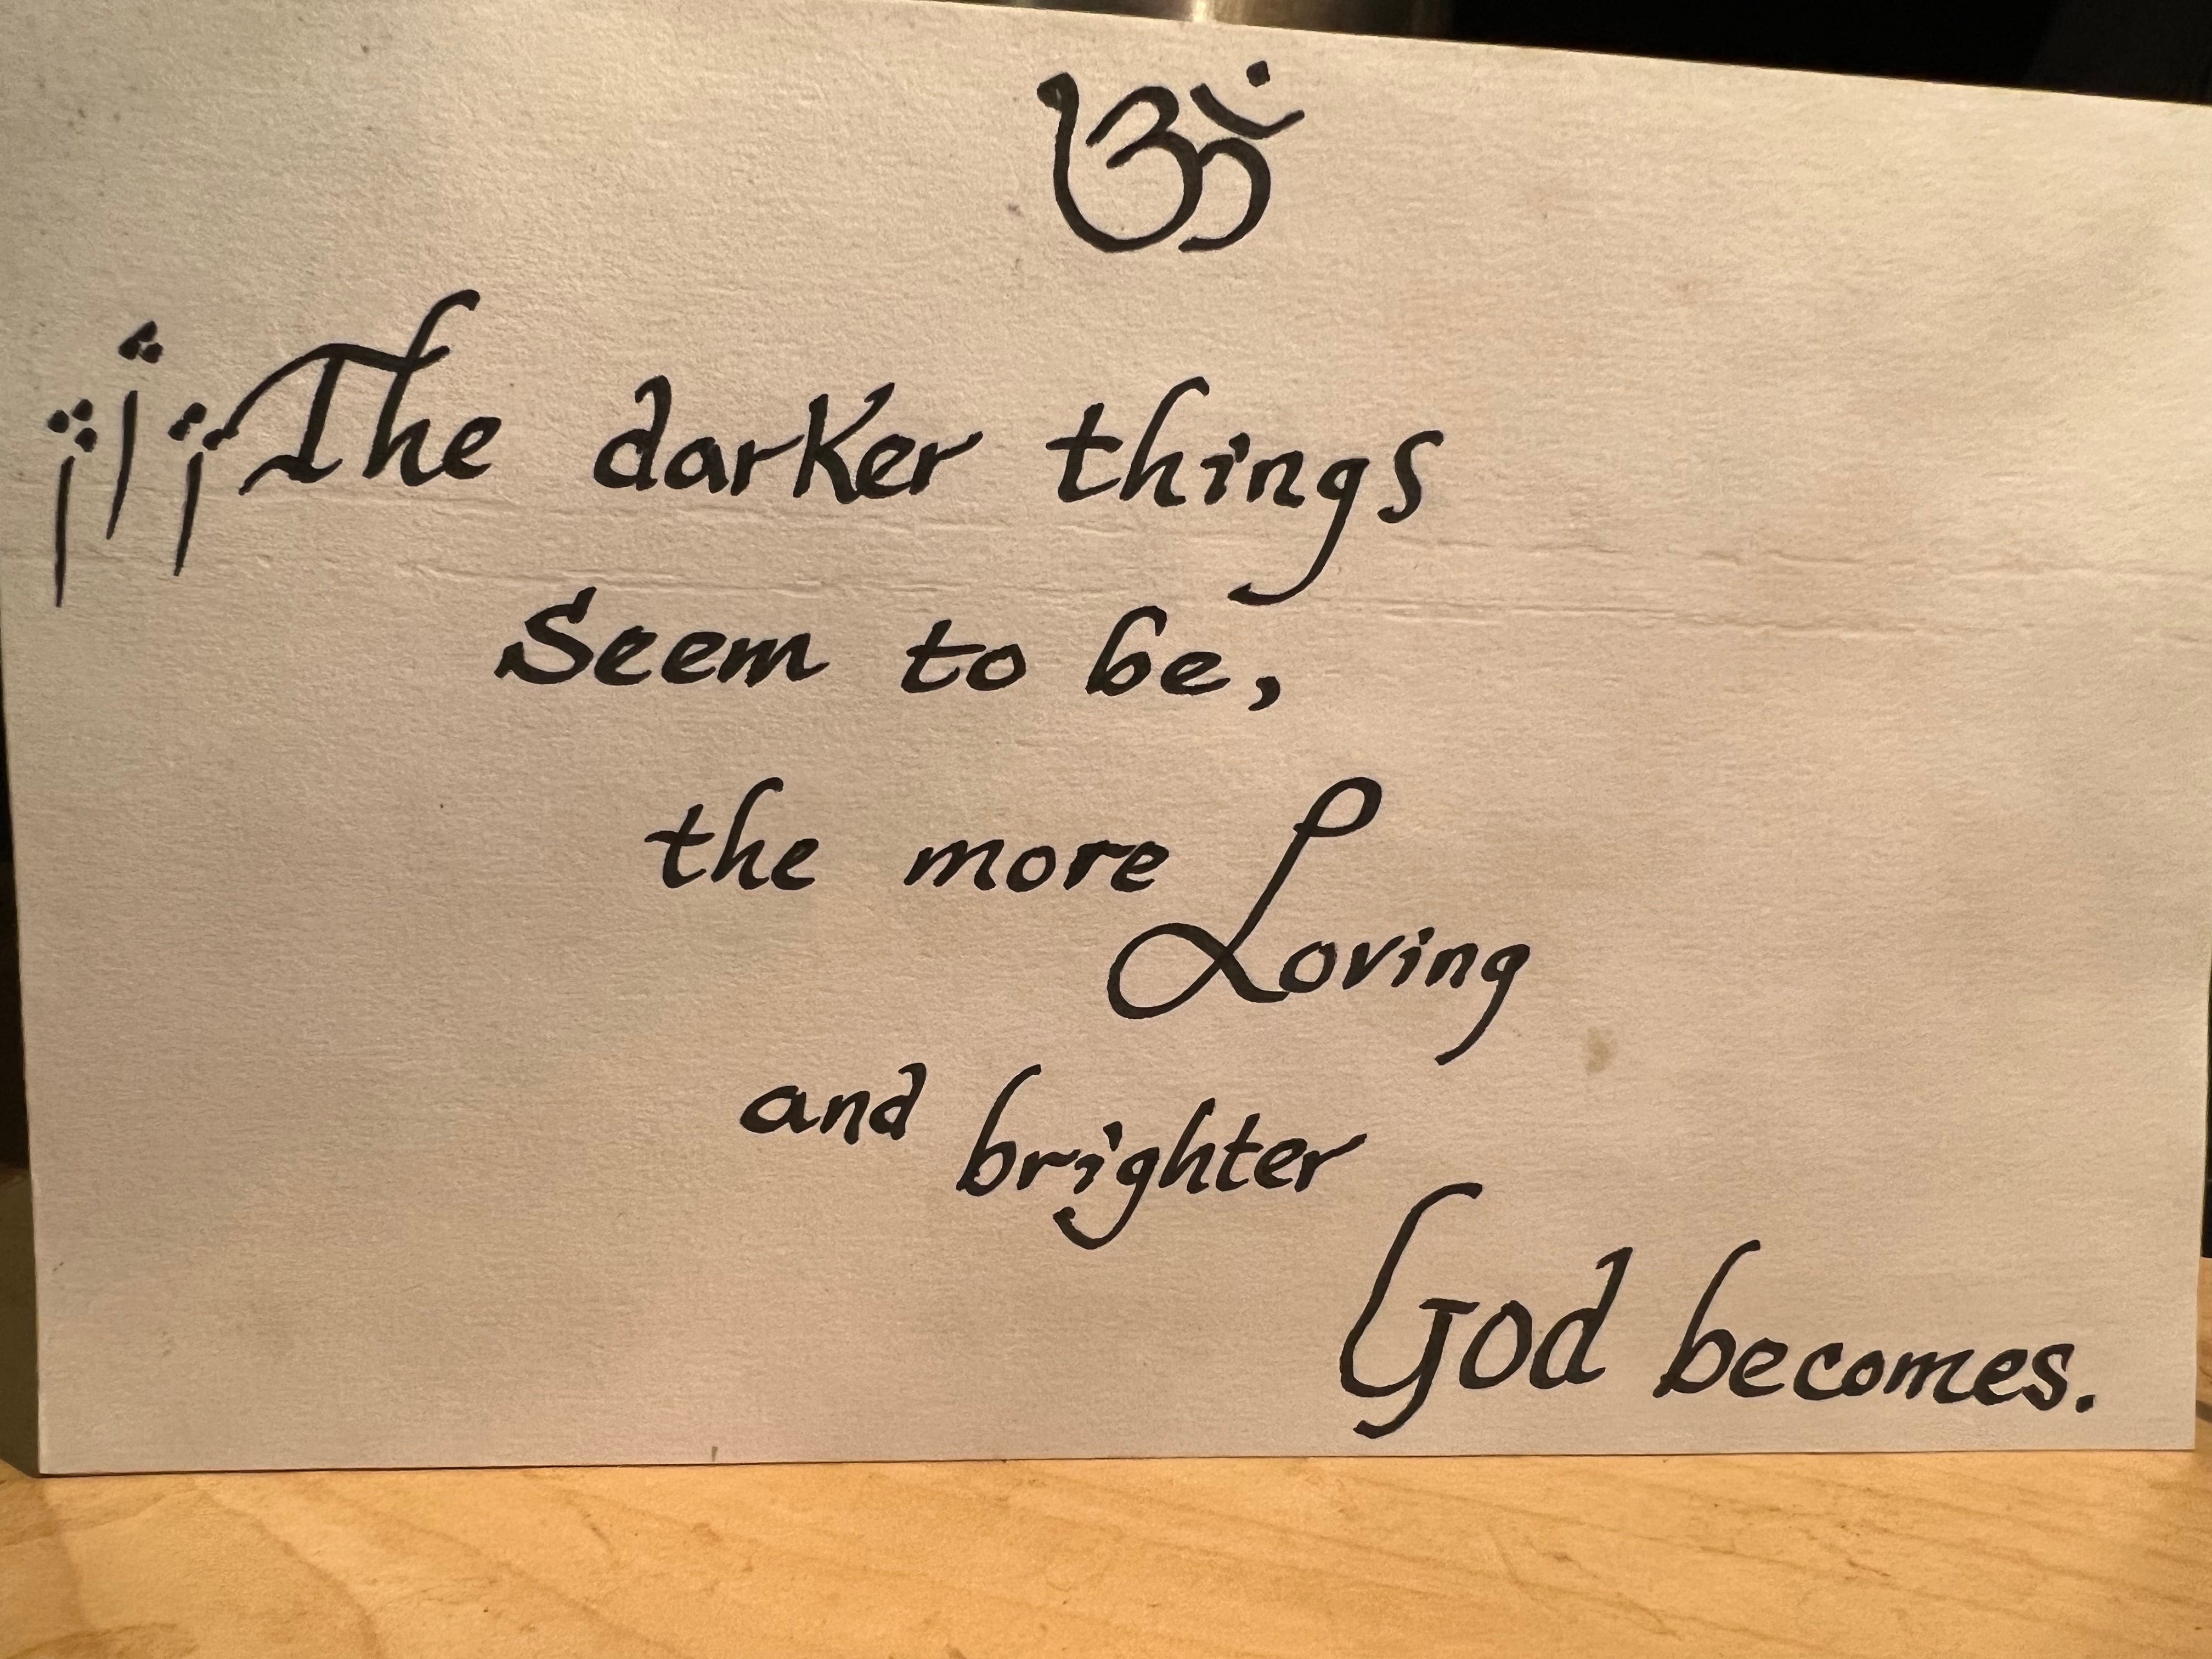 ॐ
The darker things
Seem to be,
the more Loving
and brighter
God becomes.